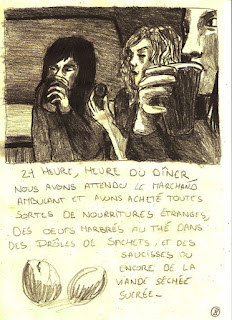 21 HEURE, HEURE DU DÎNER,
NOUS AVONS ATTENDU LE MARCHAND
AMBULANT ET AVONS ACHETÉ TOUTES
SORTES DE NOURRITURES ÉTRANGES,
DES OEUFS MARBRÉS AU THÉ DANS
DES DRÔLES DE SACHETS, ET DES
SAUCISSES OU
ENCORE DE LA
VIANDE SÉCHÉE
SUCRÉE_
8